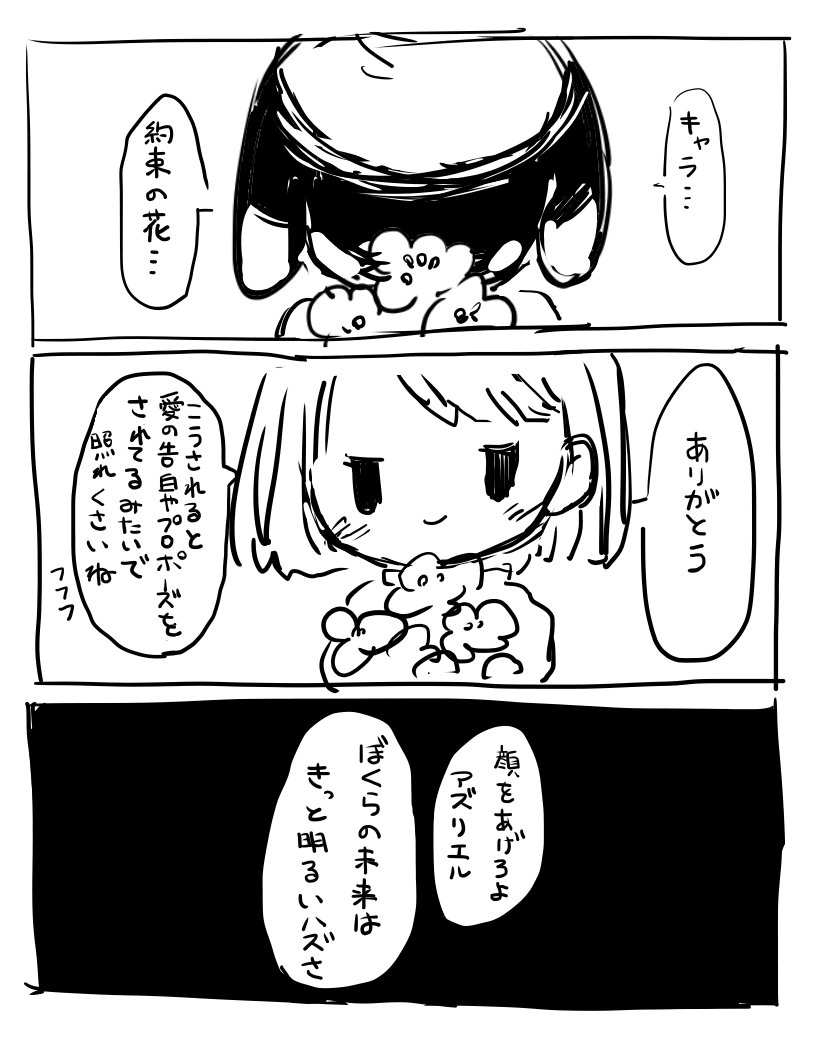 キャラ…
約束の花…
ありがとう
こうされると
愛の告白やプロポーズを
されてるみたいで
照れくさいね
フフフ
顔をあげろよ
アズリエル
ぼくらの未来は
きっと明るいハズさ